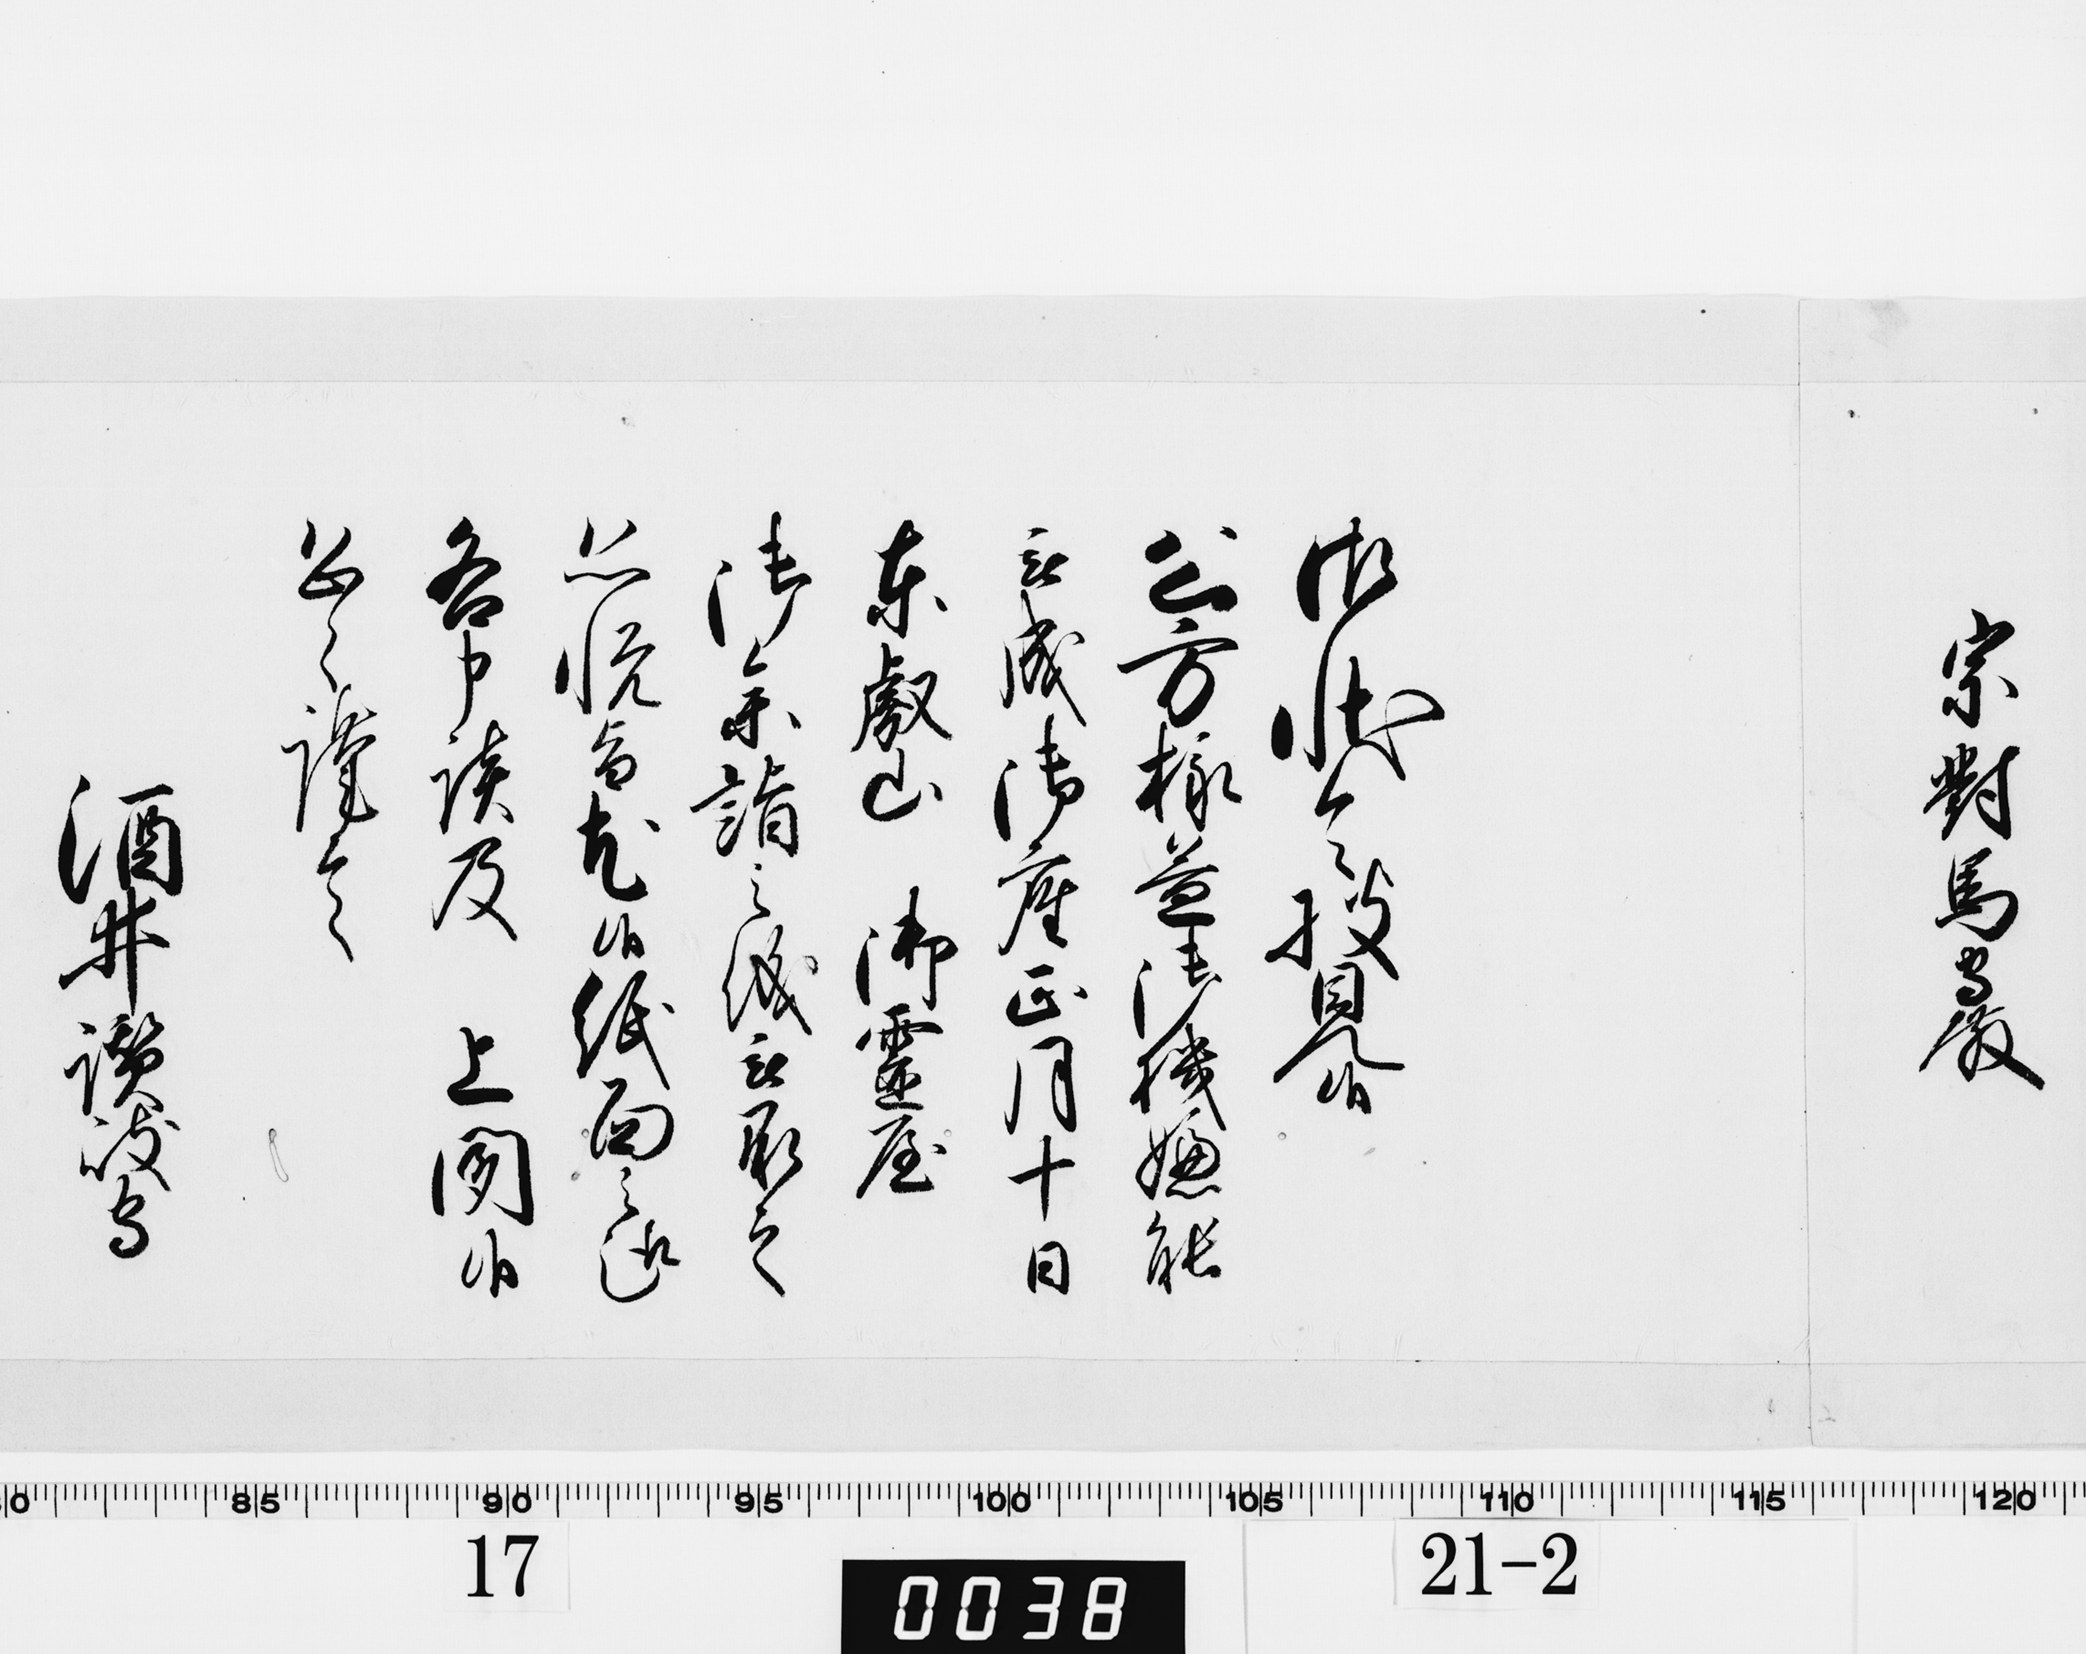 宗對馬守殿
御状令披見候
公方様益御機嫌能
被成御座正月十日
東叡山　御霊屋
御参詣之儀被承之
恐悦旨尤候紙面之趣
各申談及　上聞候
恐々謹言
酒井讃岐守
85 90 95 100 105 110 115 120
17 21-2
0038